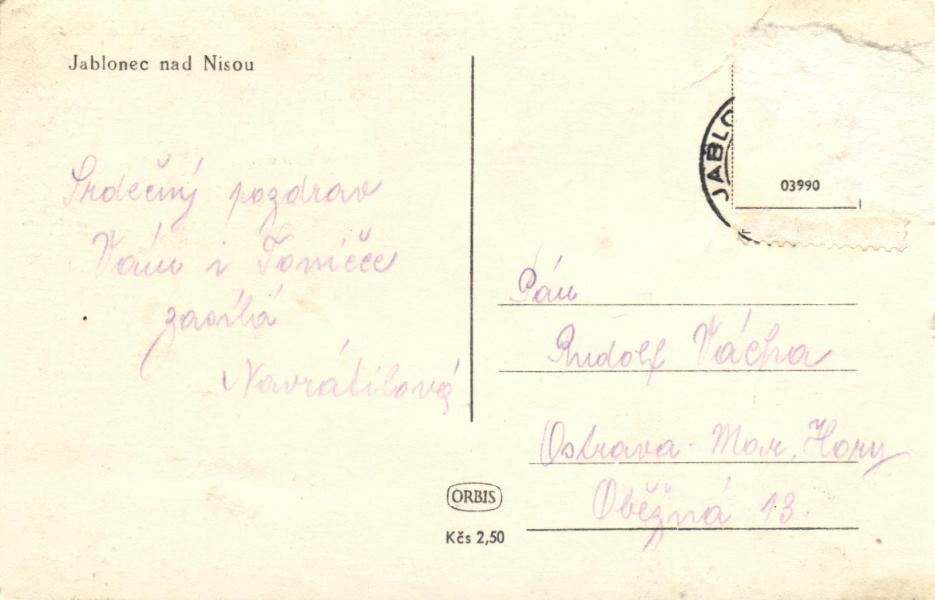 Jablonec nad Nisou
Srdečný pozdrav
Vám i Toničce
zasílá
Navrátilová
JABLO
03990
Pán
Rudolf Vácha
Ostrava - Mor. Hory
Oběžná 13.
ORBIS
Kčs 2,50